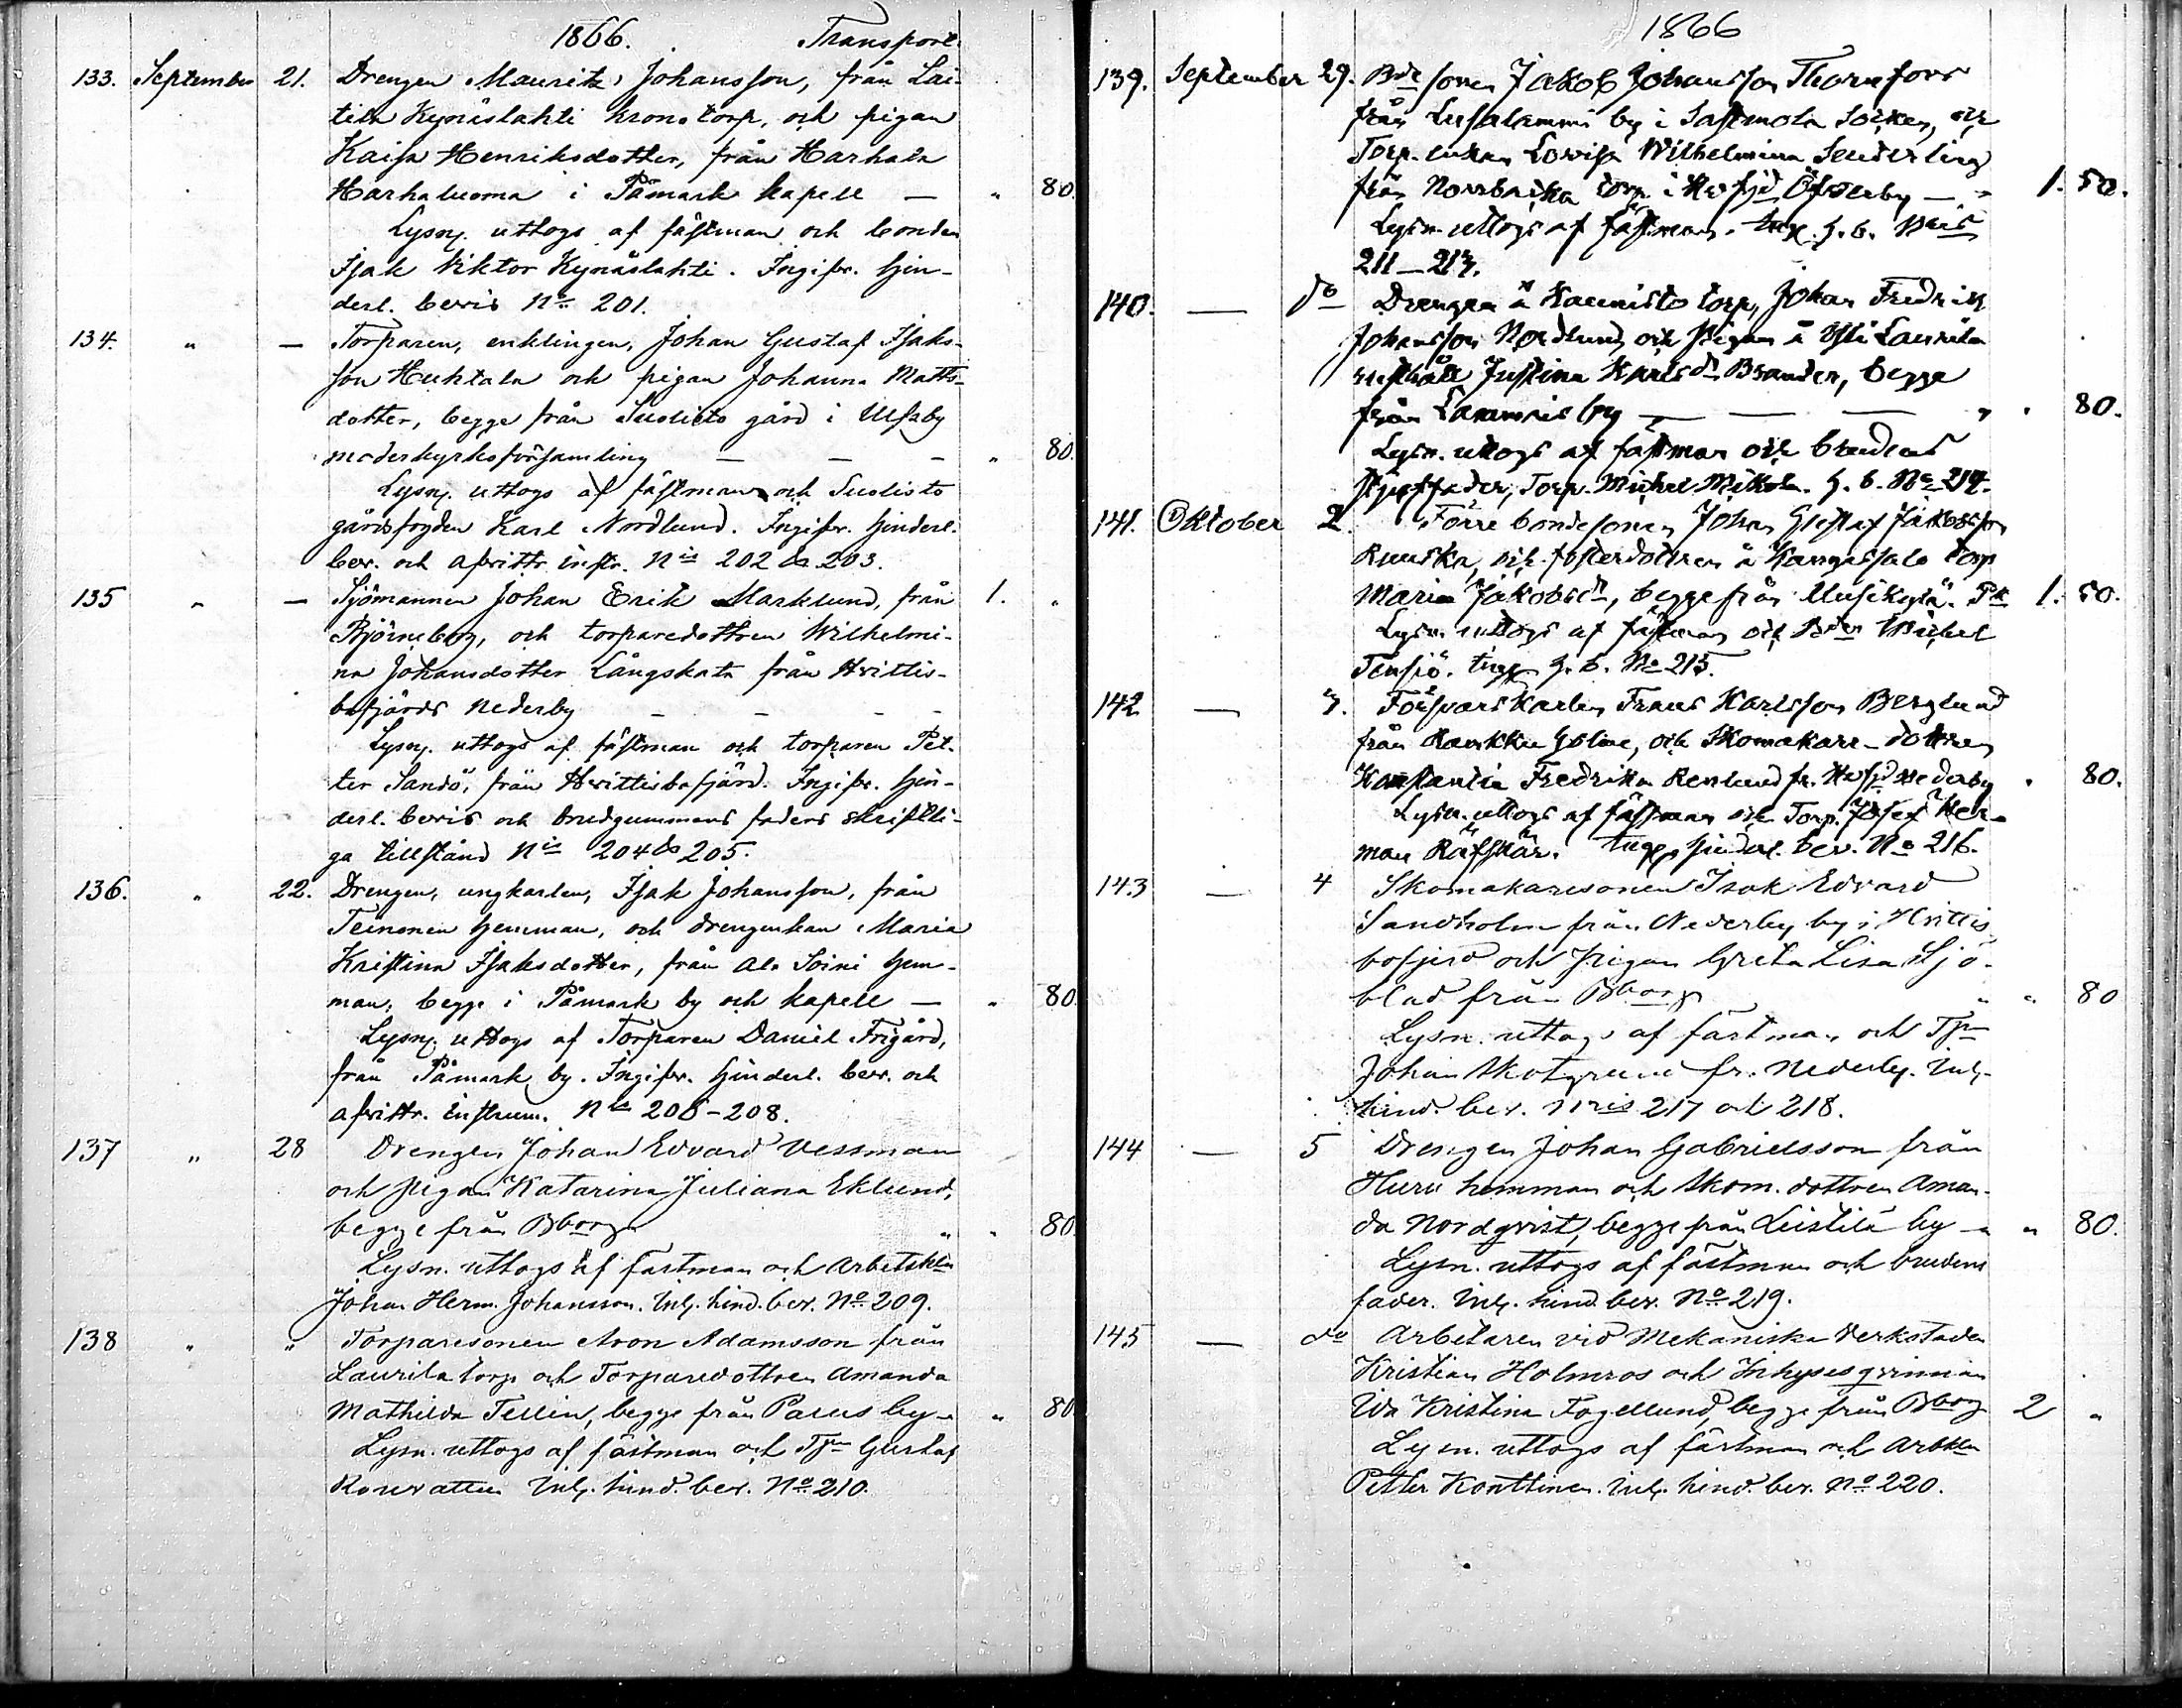 1866. Transport.
133. September 21. Drengen Mauritz Johansson, från Lai-
tila Kynäslahti kronotorp, och pigan
Kaisa Henriksdotter, från Harhala
Harhaluoma i Påmark kapell — " 80.
Lysng. uttogs af fästman och bonden
Isak Viktor Kynäslahti. Ingifv. hin-
derl. bevis No 201.
134. " — Torparen, enklingen, Johan Gustaf Isaks-
son Huhtala och pigan Johanna Matts-
dotter, begge från Suolisto gård i Ulfsby
moderkyrkoförsamling — — — " 80.
Lysng. uttogs af fästman och Suolisto
gårdsfogden Karl Nordlund. Ingifv. hinderl.
bev. och afvittr. instr. Nis 202 & 203.
135 " — Sjömannen Johan Erik Marklund, från 1. "
Björneborg, och torparedottren Wilhelmi-
na Johansdotter Långskata från Hvittis-
bofjärds Nederby — — — —
Lysng. uttogs af fästman och torparen Pet-
ter Sandö, från Hvittisbofjärd. Ingifv. hin-
derl. bevis och brudgummens faders skriftli-
ga tillstånd Nis 204 & 205.
136. " 22. Drengen, ungkarlen, Isak Johansson, från
Teinonen hemman, och drengenkan Maria
Kristina Isaksdotter, från Ala Soini hem-
man, begge i Påmark by och kapell — " 80.
Lysng. uttogs af Torparen Daniel Frigård,
från Påmark by. Ingifv. hinderl. bev. och
afvittr. instrum. Nis 206-208.
137 " 28 Drengen Johan Edvard Vessman
och pigan Katarina Juliana Eklund,
begge från Bborg " " 80.
Lysn. uttogs af fästman och Arbetskln
Johan Herm. Johansson. Inlg. hind. bev. No 209.
138 " " Torparesonen Aron Adamsson från
Laurila torp och Torparedottren Amanda
Mathilda Tellin, begge från Parus by — " 80
Lysn. uttogs af fästman och Tpn Gustaf
Inlg. hind. bev. No 210.
1866
139. September 29. Bde sonen Jakob Johansson Thornfors
från by i Sastmola Socken, och
Torp. enkan Lovisa Wilhelmina Senderling
från torp i Hvfjd Öfverby — " 1. 50.
Lysn. uttogs af fästman. h. b. Nris
211—213.
140. — do Drengen å Kaunisto torp, Johan Fredrik
Johansson Nordlund och Pigan å Yli Laurila
rusthåll Justina Karlsdr Brander, begge
från by — — — " " 80.
Lysn. uttogs af fästman och brudens
styffader, Torp. Mickel Mikola. h. b. No 214.
141. Oktober 2. Förre bondesonen Johan Gustaf Jakobsson
Ruuska, och fosterdottren å Kangassalo torp
Maria Jakobsdr, begge från Uusikylä. 1. 50.
Lysn. uttogs af fästman och Bden Michel
h. b. No 215.
142 — 3. Försvarskarlen Frans Karlsson Berglund
från och Skomakare-dottren
Konstantia Fredrika Renlund fr. Hvfjd Nederby " 80.
Lysn. uttogs af fästman och Torp. Josef Her-
man Räfskär. hinderl. bev. No 216.
143 — 4 Skomakaresonen Isak Edvard
Sandholm från Nederby by i Hvittis
bofjerd och pigan Greta Lisa Sjö-
blad från Bborg " " 80
Lysn. uttogs af fästman och Tpn
Johan Skotgrund fr. Nederby. Inlg.
hind. bev. Nris 217 och 218.
144 — 5 Drengen Johan Gabrielsson från
Huru hemman och Skom. dottren Aman-
da Nordqvist, begge från Leistilä by — " 80.
Lysn. uttogs af fästman och brudens
fader. Inlg. hind. bev. No 219.
145 — do Arbetaren vid Mekaniska Verkstaden
Kristian Holmros och Inhysesqvinnan
Ida Kristina Fogellund, begge från Bborg 2 "
Lysn. uttogs af fästman och Arbkln
Petter Konttinen. Inlg. hind. bev. No 220.